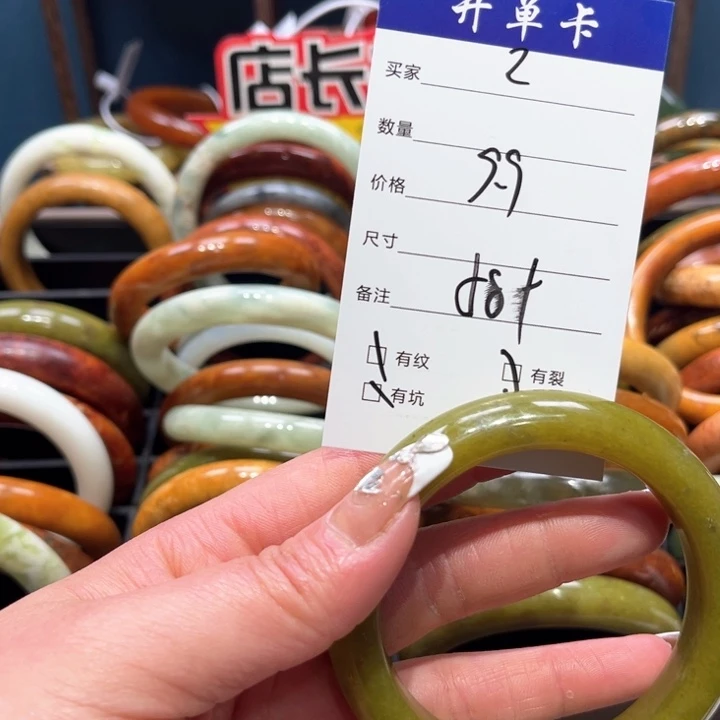 开单卡
店长
买家 2
数量
价格 99
尺寸
备注
有纹
有裂
有坑